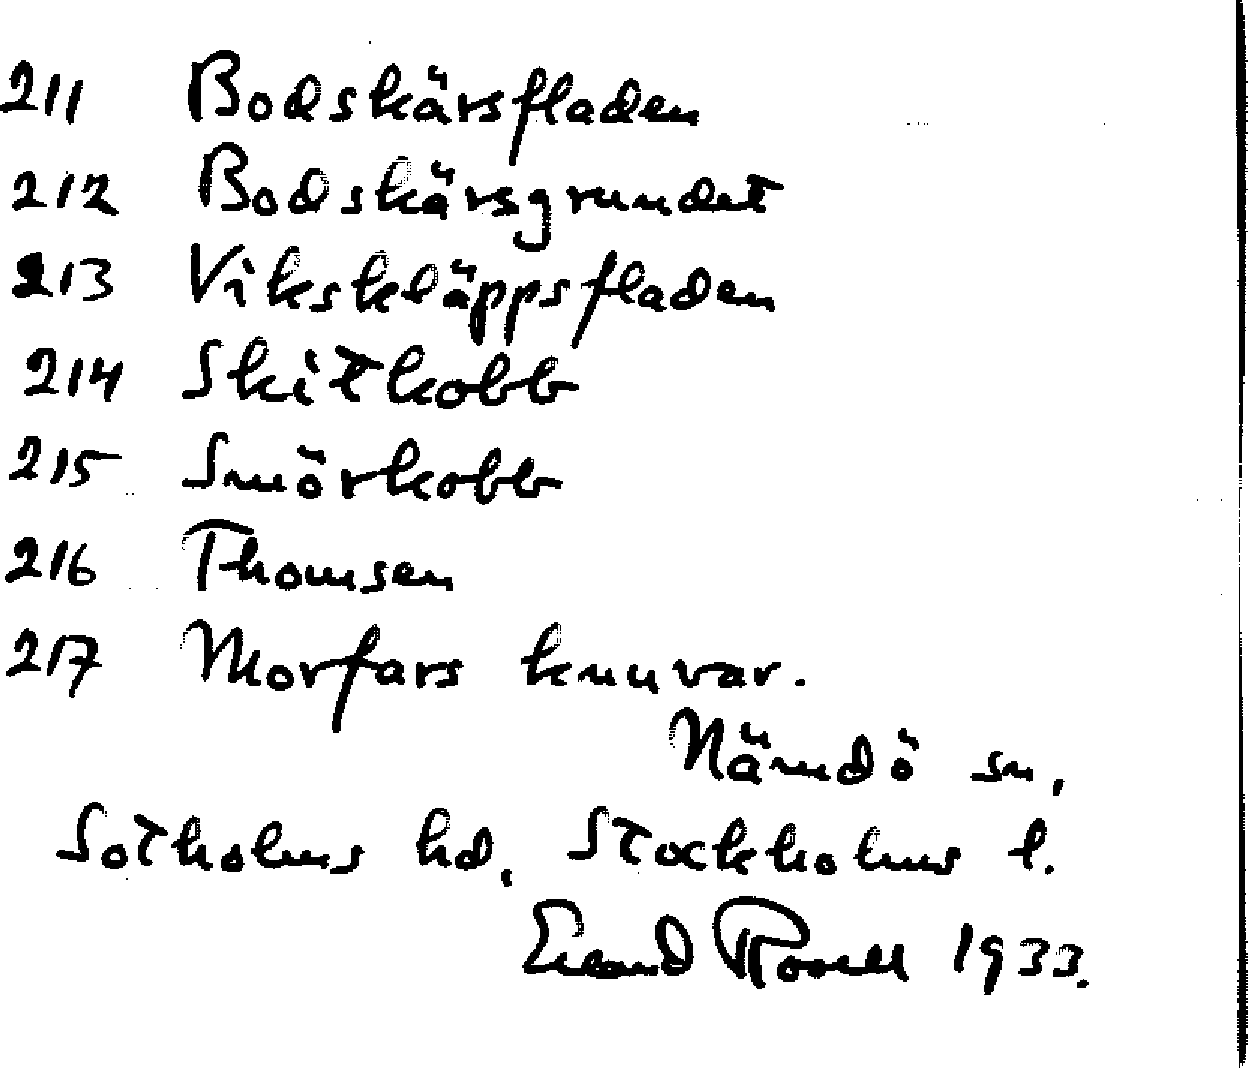 211 Bodskärsfladen
212 Bodskärsgrundet
213 Vikskläppsfladen
214 Skitkobb
215 Smörkobb
216 Thomsen
217 Morfars knuvar.
Nämdö sn,
Sotholms hd, Stockholms l.
Erland Rosell 1933.